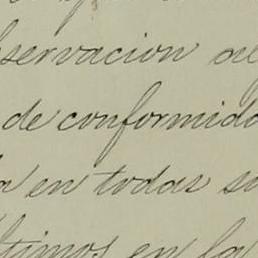 servacion
de conformida
en todas su
timos en la